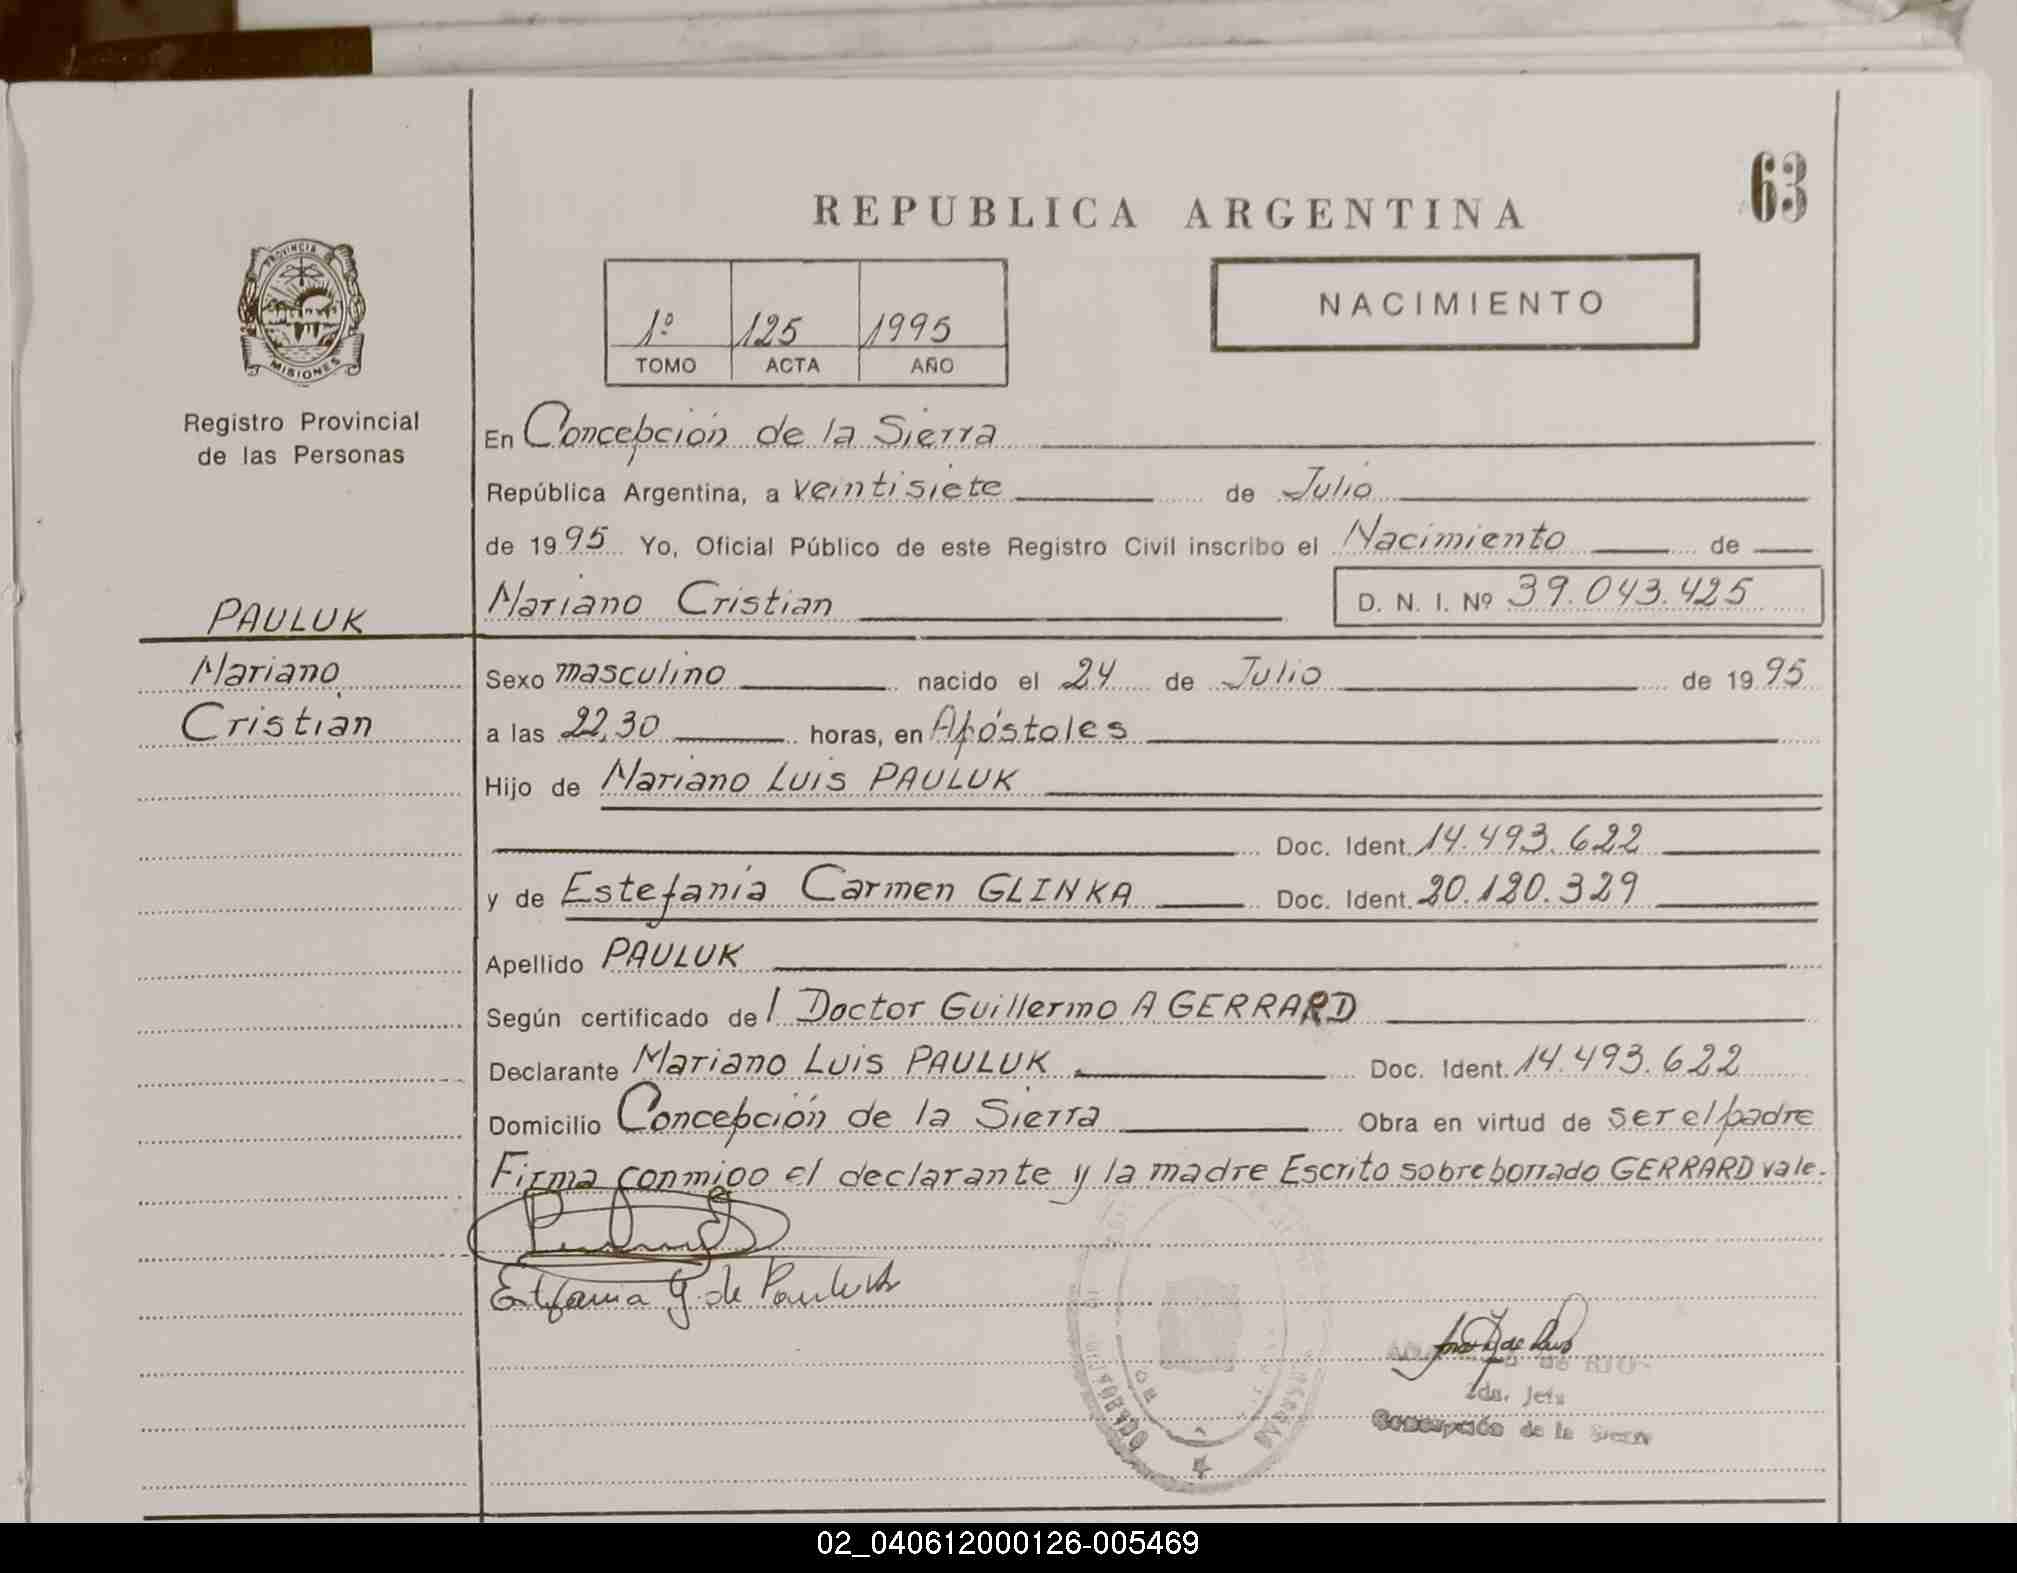 63
REPUBLICA ARGENTINA
PROVINCIA DE
MISIONES
1º 125 1995
TOMO ACTA AÑO
NACIMIENTO
Registro Provincial
de las Personas
En Concepción de la Sierra
República Argentina, a veintisiete de Julio
de 1995 Yo, Oficial Público de este Registro Civil inscribo el Nacimiento de
PAULUK
Mariano Cristian D. N. I. Nº 39.043.425
Mariano
Cristian
Sexo masculino nacido el 24 de Julio de 1995
a las 22,30 horas, en Apóstoles
Hijo de Mariano Luis PAULUK
Doc. Ident. 14.493.622
y de Estefania Carmen GLINKA Doc. Ident. 20.120.329
Apellido PAULUK
Según certificado del Doctor Guillermo A GERRARD
Declarante Mariano Luis PAULUK Doc. Ident. 14.493.622
Domicilio Concepción de la Sierra Obra en virtud de ser el padre
Firma conmigo el declarante y la madre Escrito sobreborrado GERRARD vale.
Estefania G. de Pauluk
de
2da. Jefa
Concepción de la Sierra
02_040612000126-005469